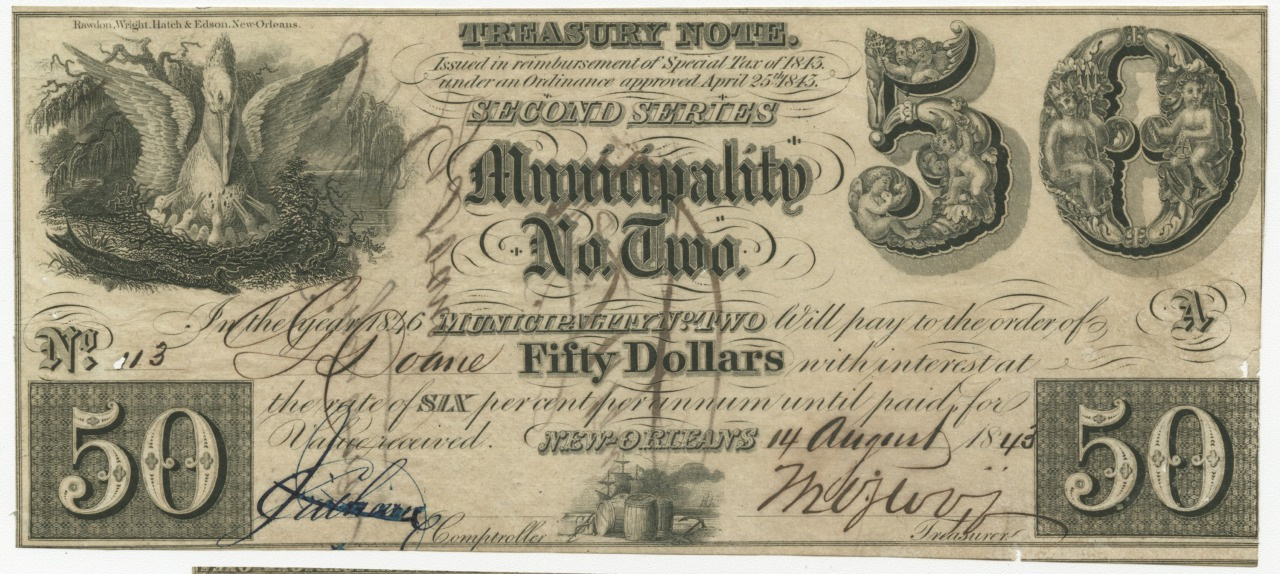 Rawdon, Wright, Hatch & Edson, New-Orleans.
TREASURY NOTE.
Issued in reimbursement of Special Tax of 1843.
under an Ordinance approved April 25th 1843.
SECOND SERIES
50
Municipality
No. Two.
In the year 1846 MUNICIPALITY No TWO Will pay to the order of
A
No. 113
Doane Fifty Dollars with interest at
the rate of SIX per cent per annum until paid, for
Value received. NEW-ORLEANS 14 August 1843
50
50
Comptroller
Treasurer